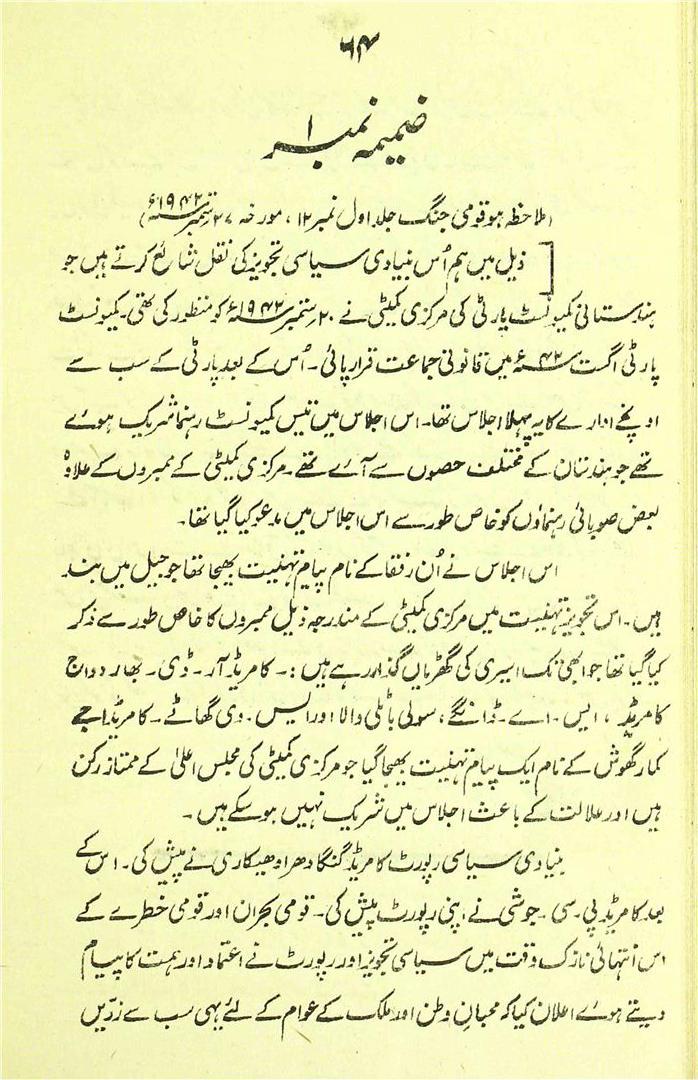 ۶۴
ضمیمہ نمبر ۱
(ملاحظہ ہو قومی جنگ جلد اول نمبر ۱۲، مورخہ ۲۷ ستمبر ۱۹۴۲ء)
[ذیل میں ہم اُس بنیادی سیاسی تجویز کی نقل شائع کرتے ہیں جو
ہندستانی کمیونسٹ پارٹی کی مرکزی کمیٹی نے ۲۰ ستمبر ۱۹۴۲ء کو منظور کی تھی۔ کمیونسٹ
پارٹی اگست ۴۲ء میں قانونی جماعت قرار پائی۔ اُس کے بعد پارٹی کے سب سے
اونچے ادارے کا یہ پہلا اجلاس تھا۔ اس اجلاس میں تیس کمیونسٹ رہنما شریک ہوئے
تھے جو ہندستان کے مختلف حصوں سے آئے تھے۔ مرکزی کمیٹی کے ممبروں کے علاوہ
بعض صوبائی رہنماؤں کو خاص طور سے اس اجلاس میں مدعو کیا گیا تھا۔
اس اجلاس نے اُن رفقا کے نام پیام تہنیت بھیجا تھا جو جیل میں بند
ہیں۔ اس تجویز تہنیت میں مرکزی کمیٹی کے مندرجہ ذیل ممبروں کا خاص طور سے ذکر
کیا گیا تھا جو ابھی تک اسیری کی گھڑیاں گذار رہے ہیں :۔ کامریڈ آر۔ ڈی۔ بھاردواج
کامریڈ، ایس۔ اے۔ ڈانگے، سولی باٹلی والا اور ایس۔ وی گھاٹے۔ کامریڈ اجے
کمار گھوش کے نام ایک پیام تہنیت بھیجا گیا جو مرکزی کمیٹی کی مجلس اعلیٰ کے ممتاز رکن
ہیں اور علالت کے باعث اجلاس میں شریک نہیں ہو سکے ہیں۔
بنیادی سیاسی رپورٹ کامریڈ گنگا دھر ادھیکاری نے پیش کی۔ اس کے
بعد کامریڈ پی۔ سی۔ جوشی نے اپنی رپورٹ پیش کی۔ قومی بحران اور قومی خطرے کے
اس انتہائی نازک وقت میں سیاسی تجویز اور رپورٹ نے اعتماد اور ہمت کا پیام
دیتے ہوئے اعلان کیا کہ محبان وطن اور ملک کے عوام کے لئے یہی سب سے زرّیں